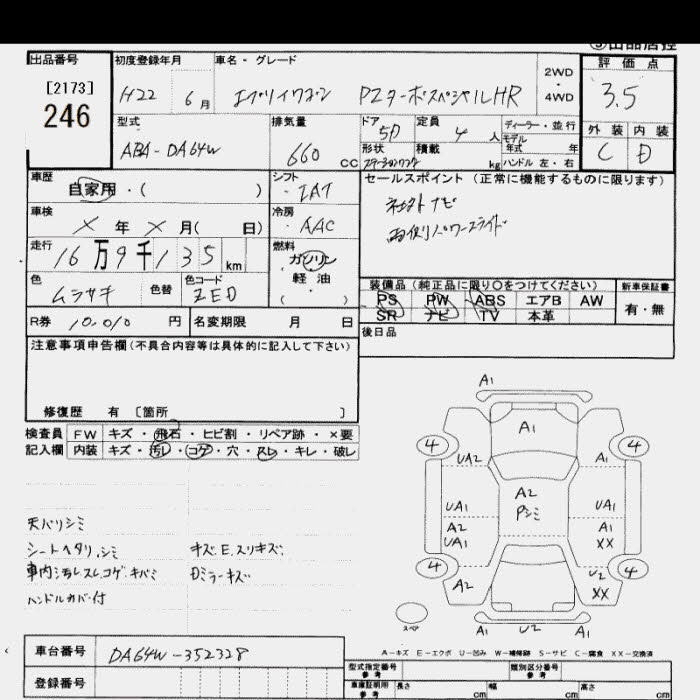 出品番号
[2173]
246
初度登録年月
H22 6月
車名・グレード
エブリイワゴン PZターボスペシャルHR
2WD
・
4WD
評価点
3.5
外装 内装
C D
型式
ABA-DA64W
排気量
660 cc
ドア
5D
定員
4人
形状
ステーションワゴン
積載
kg
ディーラー・並行
モデル
年式 年
ハンドル 左・右
車歴
自家用・( )
シフト
IAT
車検
X年X月( 日)
冷房
AAC
走行
16万9千135km
燃料
ガソリン
軽油
( ・ )
色
ムラサキ
色替
色コード
ZED
セールスポイント(正常に機能するものに限ります)
社外ナビ
両側パワースライド
装備品(純正品に限り〇をつけてください)
新車保証書
PS PW ABS エアB AW
SR ナビ TV 本革
有・無
後日品
R券 10,010円
名変期限 月 日
注意事項申告欄(不具合内容等は具体的に記入して下さい)
修復歴 有 〔箇所 〕
検査員 FW キズ・飛石・ヒビ割・リペア跡・×要
記入欄 内装 キズ・汚レ・コゲ・穴・スレ・キレ・破レ
天バリシミ
シートヘタリ、シミ キズ、E、スリキズ、
車内汚レ、スレ、コゲ、キバミ Dミラーキズ
ハンドルカバー付
A1
A1
4 4
UA2 A1
A2
Pシミ
UA1 UA1
A2 A1
UA1 XX
4 4
A2 U2
XX
スペア
A1 U2 A1
A-キズ E-エクボ U-凹み W-補修跡 S-サビ C-腐食 XX-交換済
車台番号 DA64W-352328
登録番号
型式指定番号
参考
類別区分番号
参考
車庫証明用
参考
長さ cm 幅 cm 高さ cm